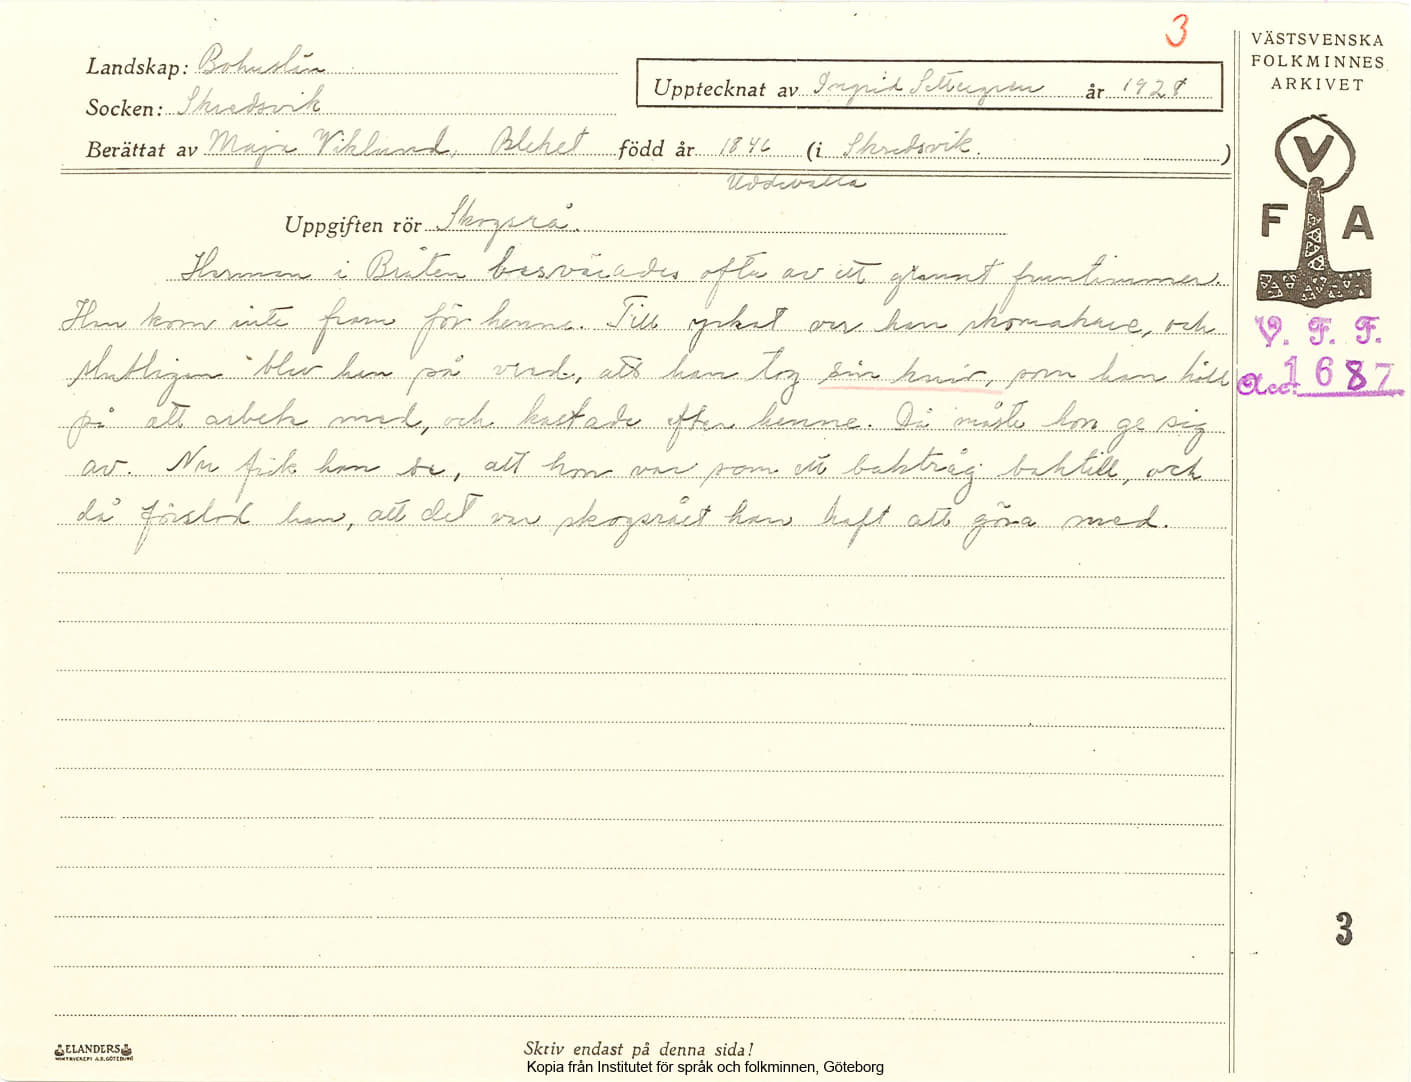 3
VÄSTSVENSKA
FOLKMINNES
ARKIVET
Landskap: Bohuslän
Upptecknat av Ingrid Settergren år 1928
Socken: Skredsvik
Berättat av Maja Viklund, Blehet född år 1846 (i Skredsvik.)
Uddevalla
V
F A
Uppgiften rör Skogsrå.
Herman i Bråten besvärades ofta av ett grannt fruntimmer.
Han kom inte fram för henne. Till yrket var han skomakare, och
slutligen blev han på vred, att han tog sin kniv, som han höll
på att arbeta med, och kastade efter henne. Då måste hon ge sig
av. Nu fick han se, att hon var som ett baktråg baktill, och
då förstod han, att det var skogsrået han haft att göra med.
V. F. F.
Acc. 1687
3
ELANDERS
Skriv endast på denna sida!
Kopia från Institutet för språk och folkminnen, Göteborg